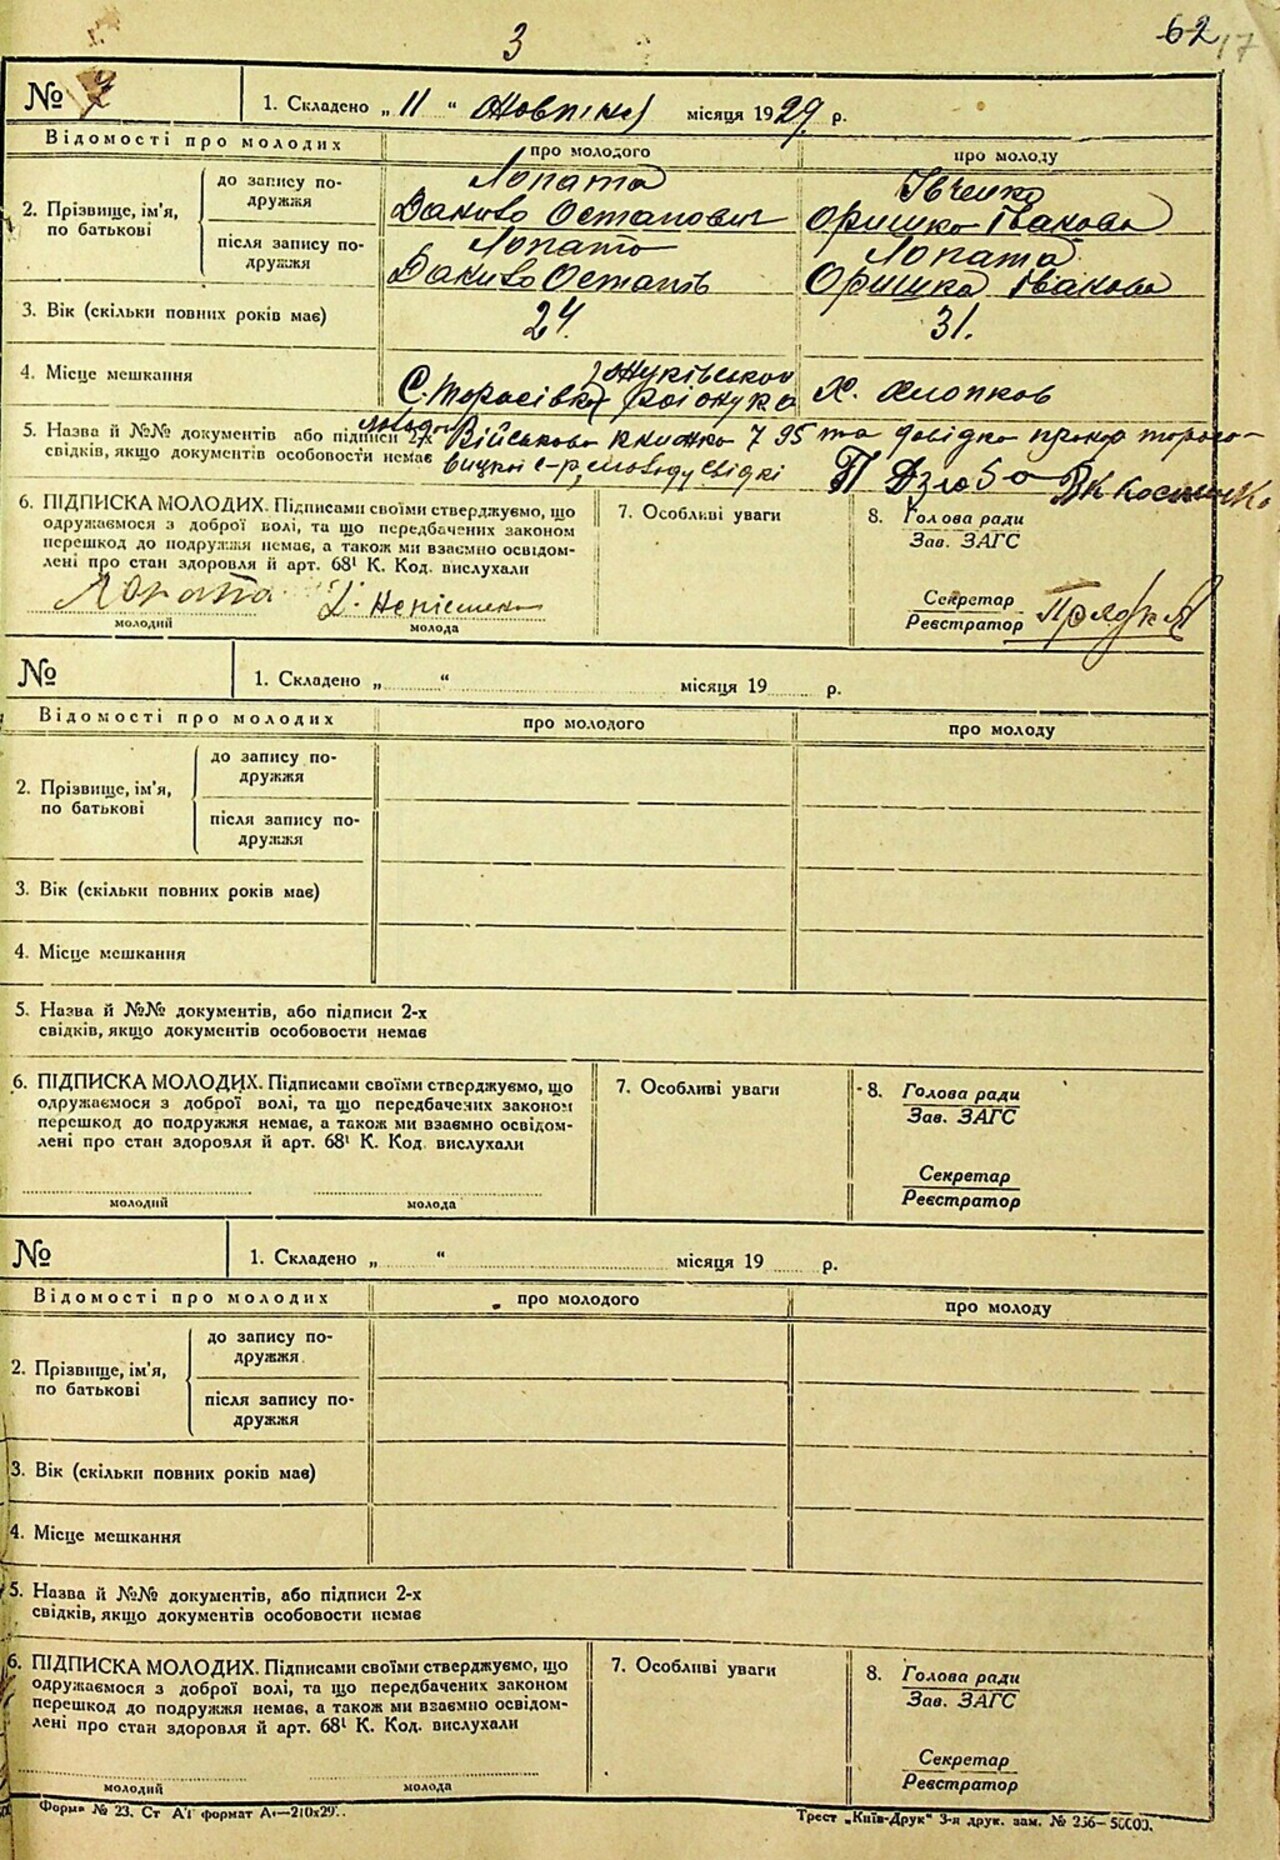 3
62
17
№ 7
1. Складено „ 11 “ Жовтня місяця 1929 р.
Відомості про молодих
про молодого
про молоду
2. Прізвище, ім'я, по батькові
до запису по-
дружжя
Лопата
Якиво Остапович
Івченко
Оришка Іванова
після запису по-
дружжя
Лопата
Якиво Остапів
Лопата
Оришка Іванова
3. Вік (скільки повних років має)
24.
31.
4. Місце мешкання
С. Торасівка
Жуківської
району
Х. Хлопков
5. Назва й №№ документів або підписи 2-х
свідків, якщо документів особовости немає
Військова книжка 795 та довідка
молоду свідкі
П Дзюба
6. ПІДПИСКА МОЛОДИХ. Підписами своїми стверджуємо, що
одружаємося з доброї волі, та що передбачених законом
перешкод до подружжя немає, а також ми взаємно освідом-
лені про стан здоровля й арт. 68¹ К. Код. вислухали
Лопата
молодий
молода
7. Особливі уваги
8. Голова ради
Зав. ЗАГС
Секретар
Реєстратор
№
1. Складено „ “ місяця 19 р.
Відомості про молодих
про молодого
про молоду
2. Прізвище, ім'я,
по батькові
до запису по-
дружжя
після запису по-
дружжя
3. Вік (скільки повних років має)
4. Місце мешкання
5. Назва й №№ документів, або підписи 2-х
свідків, якщо документів особовости немає
6. ПІДПИСКА МОЛОДИХ. Підписами своїми стверджуємо, що
одружаємося з доброї волі, та що передбачених законом
перешкод до подружжя немає, а також ми взаємно освідом-
лені про стан здоровля й арт. 68¹ К. Код. вислухали
молодий
молода
7. Особливі уваги
8. Голова ради
Зав. ЗАГС
Секретар
Реєстратор
№
1. Складено „ “ місяця 19 р.
Відомості про молодих
про молодого
про молоду
2. Прізвище, ім'я,
по батькові
до запису по-
дружжя
після запису по-
дружжя
3. Вік (скільки повних років має)
4. Місце мешкання
5. Назва й №№ документів, або підписи 2-х
свідків, якщо документів особовости немає
6. ПІДПИСКА МОЛОДИХ. Підписами своїми стверджуємо, що
одружаємося з доброї волі, та що передбачених законом
перешкод до подружжя немає, а також ми взаємно освідом-
лені про стан здоровля й арт. 68¹ К. Код. вислухали
молодий
молода
7. Особливі уваги
8. Голова ради
Зав. ЗАГС
Секретар
Реєстратор
Форма № 23. Ст А4 формат А4—210х297.
Трест „Київ-Друк“ 3-я друк. зам. № 256—50000.